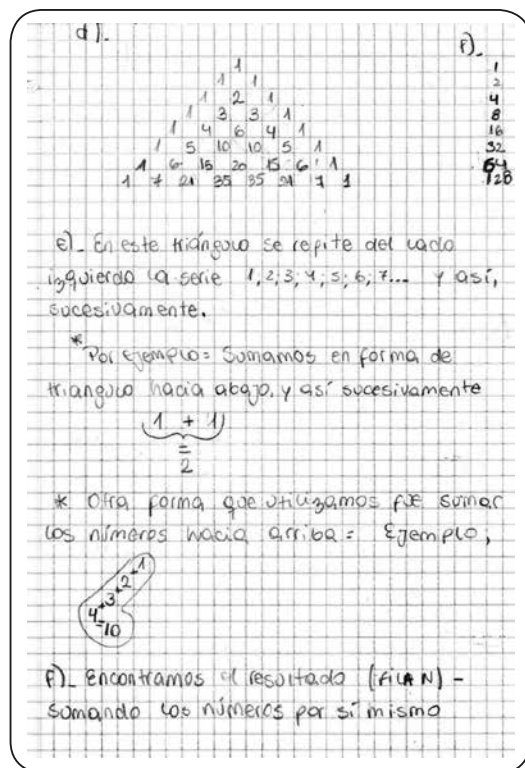 d).
f)_
1
1 1
1 2 1
1 3 3 1
1 4 6 4 1
1 5 10 10 5 1
1 6 15 20 15 6 1
1 7 21 35 35 21 7 1
1
2
4
8
16
32
64
128
e)_ En este triángulo se repite del lado
izquierdo la serie 1, 2; 3, 4; 5; 6; 7... y así,
sucesivamente.
* Por ejemplo: Sumamos en forma de
triangulo hacia abajo. y así sucesivamente
1 + 1
=
2
* Otra forma que utilizamos fue sumar
los números hacia arriba = Ejemplo;
4+3+2+1
=10
f)_ Encontramos el resultado (FILA N) -
sumando los números por sí mismo